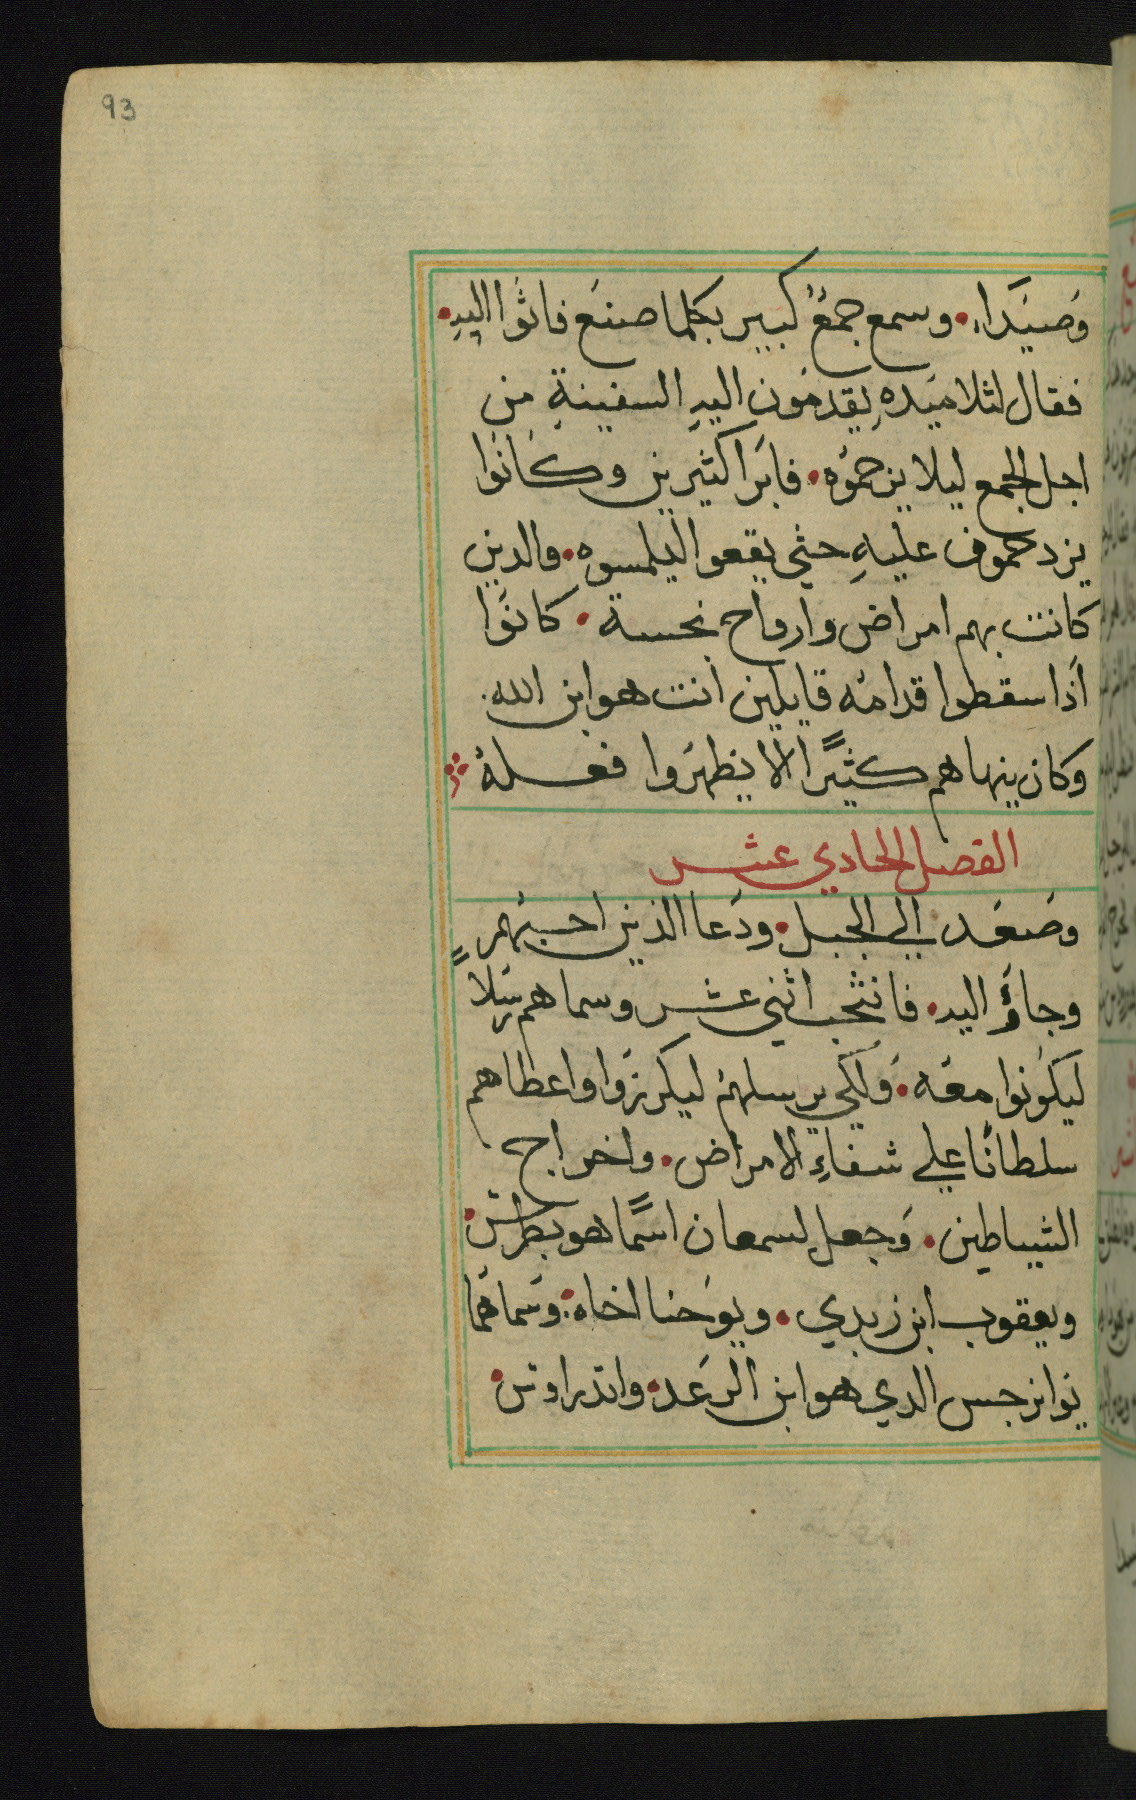 93
وَصَيَدَاء. وسمع جمعُ كبير بكلما صنَع فاتَوا اليهِ.
فقال لتلاميَدهِ يقدمَون اليهِ السفينةِ من
اجل الجمع ليلا يزحموُه. فابَرا كثيرين وكانوَا
يزدحموف عليهِ حتي يقعوا ليلمسوه. والدين
كانت بهم امراض وارواح نجسة. كانوَا
اَذا سقطوا قدامهُ قايلين انت هو ابن الله.
وكان ينهاهم كثيرًا الا يظهرَوا فعلهُ
الفصل الحادي عشر
وصَعَد الي الجبل. ودَعا الذين احبَهمر
وجاؤ اليه. فانتخب اثني عشر وسماهم رسلا
ليكوَنوا معَه. وَلكي يرسلهمُ ليكرزوَا واعطاهم
سلطانًا علي شفاءِ الامراض. واخراج
الشياطين. وَجعل لسمعان اسمًا هو بطرس.
ويعقوب ابن زبدي. ويوَحنا اخاه. وَسماهَما
نوانرجس الدي هو ابن الرعَد. واندراوس.